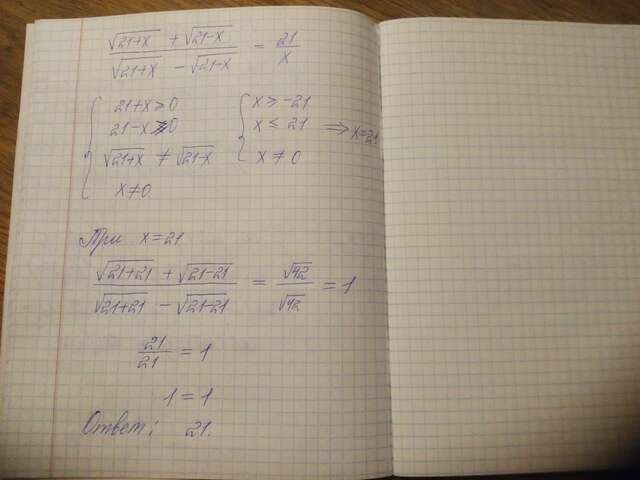 (√(21+x) + √(21-x)) / (√(21+x) - √(21-x)) = 21/x
{ 21+x ≥ 0 { x ≥ -21
21-x ≥ 0 x ≤ 21 ⇒ x=21
√(21+x) ≠ √(21-x) x ≠ 0
x≠0
При x=21
(√(21+21) + √(21-21)) / (√(21+21) - √(21-21)) = √42/√42 = 1
21/21 = 1
1 = 1
Ответ: 21.